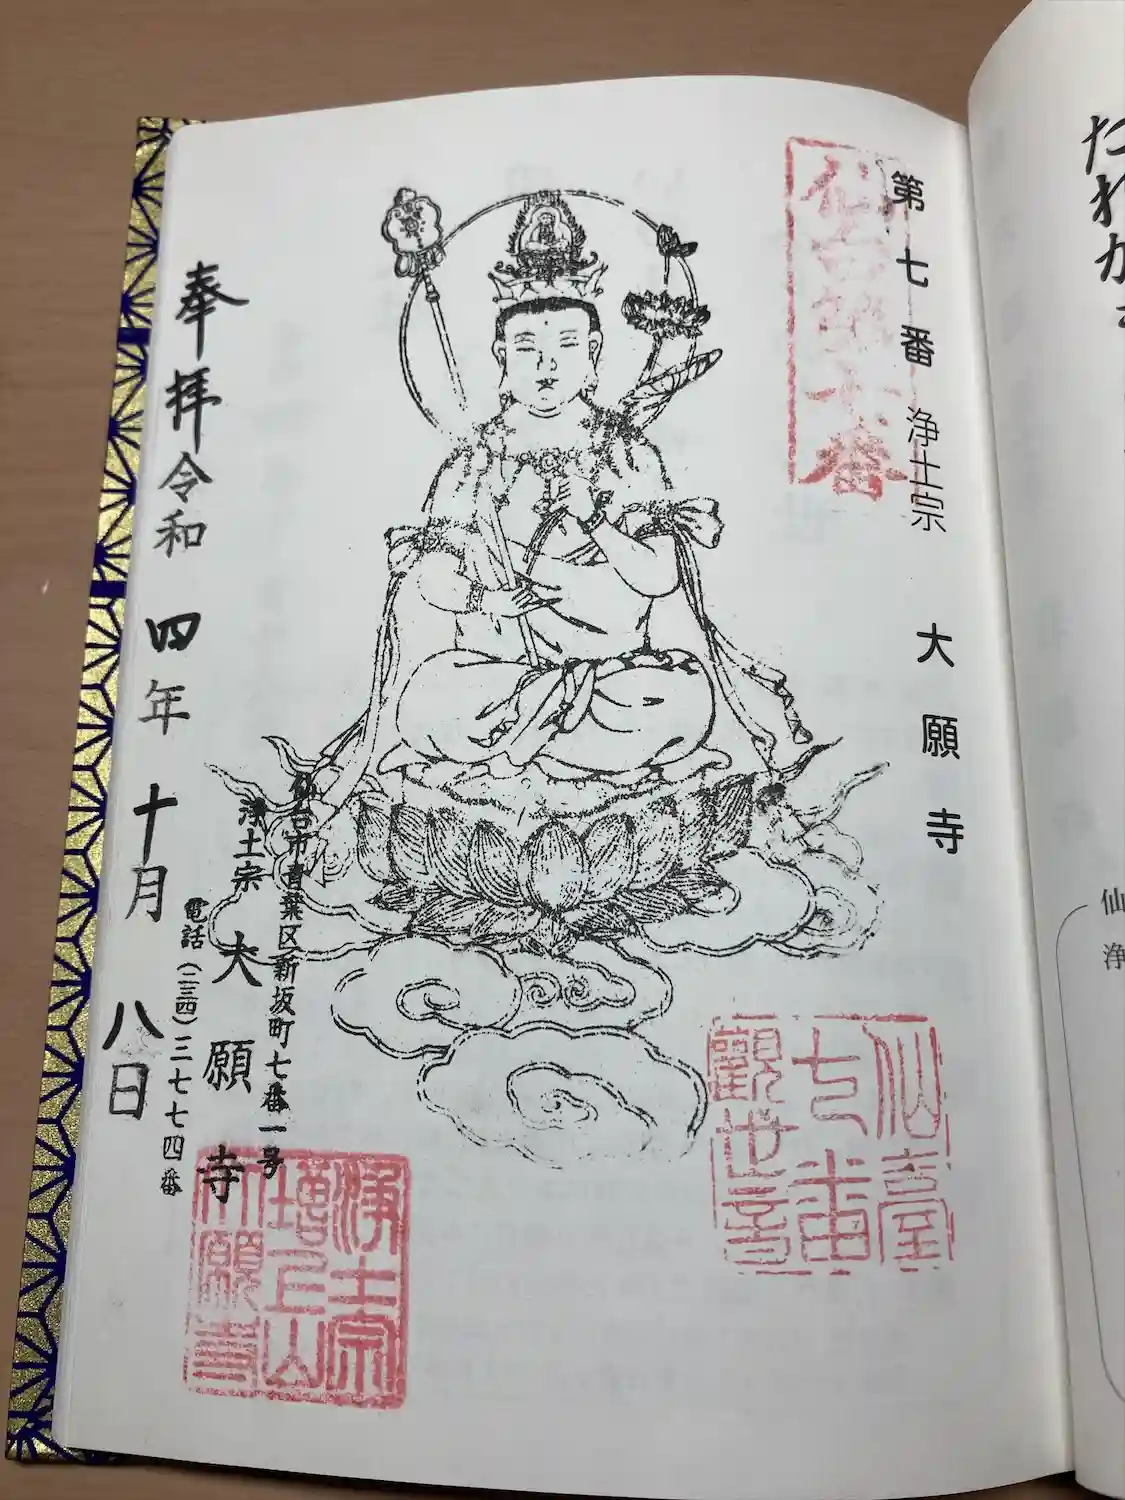 たれか
仙
浄
第七番 浄土宗 大願寺
仙臺
七番
觀世音
仙台市青葉区新坂町七番一号
浄土宗 大願寺
電話(二三四)三七七四番
浄土宗
増上山
大願寺
奉拝 令和四年十月八日